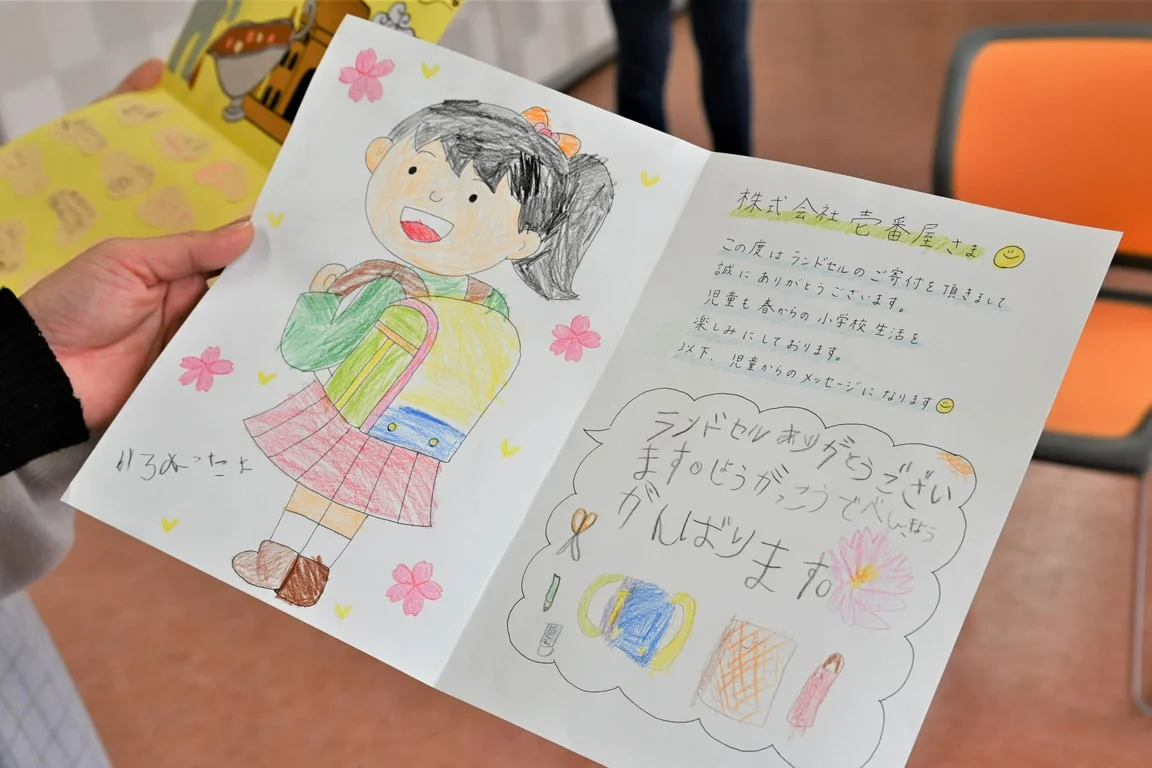 いろぬったよ
株式会社 壱番屋さま
この度は ランドセルの ご寄付を 頂きまして
誠に ありがとうございます。
児童も 春からの 小学校 生活を
楽しみに しております。
以下、児童からの メッセージに なります
ランドセルありがとうござい
ます。しょうがっこうでべんきょう
がんばります。